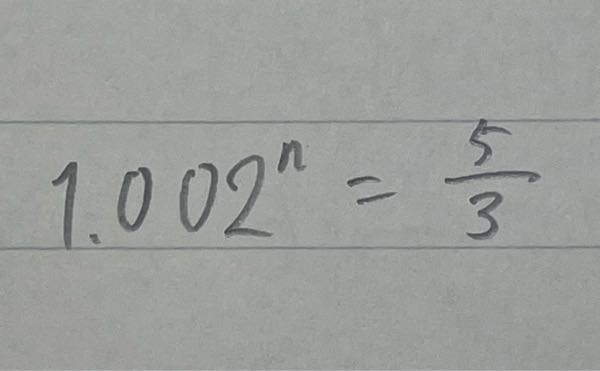 1.002ⁿ = 5/3